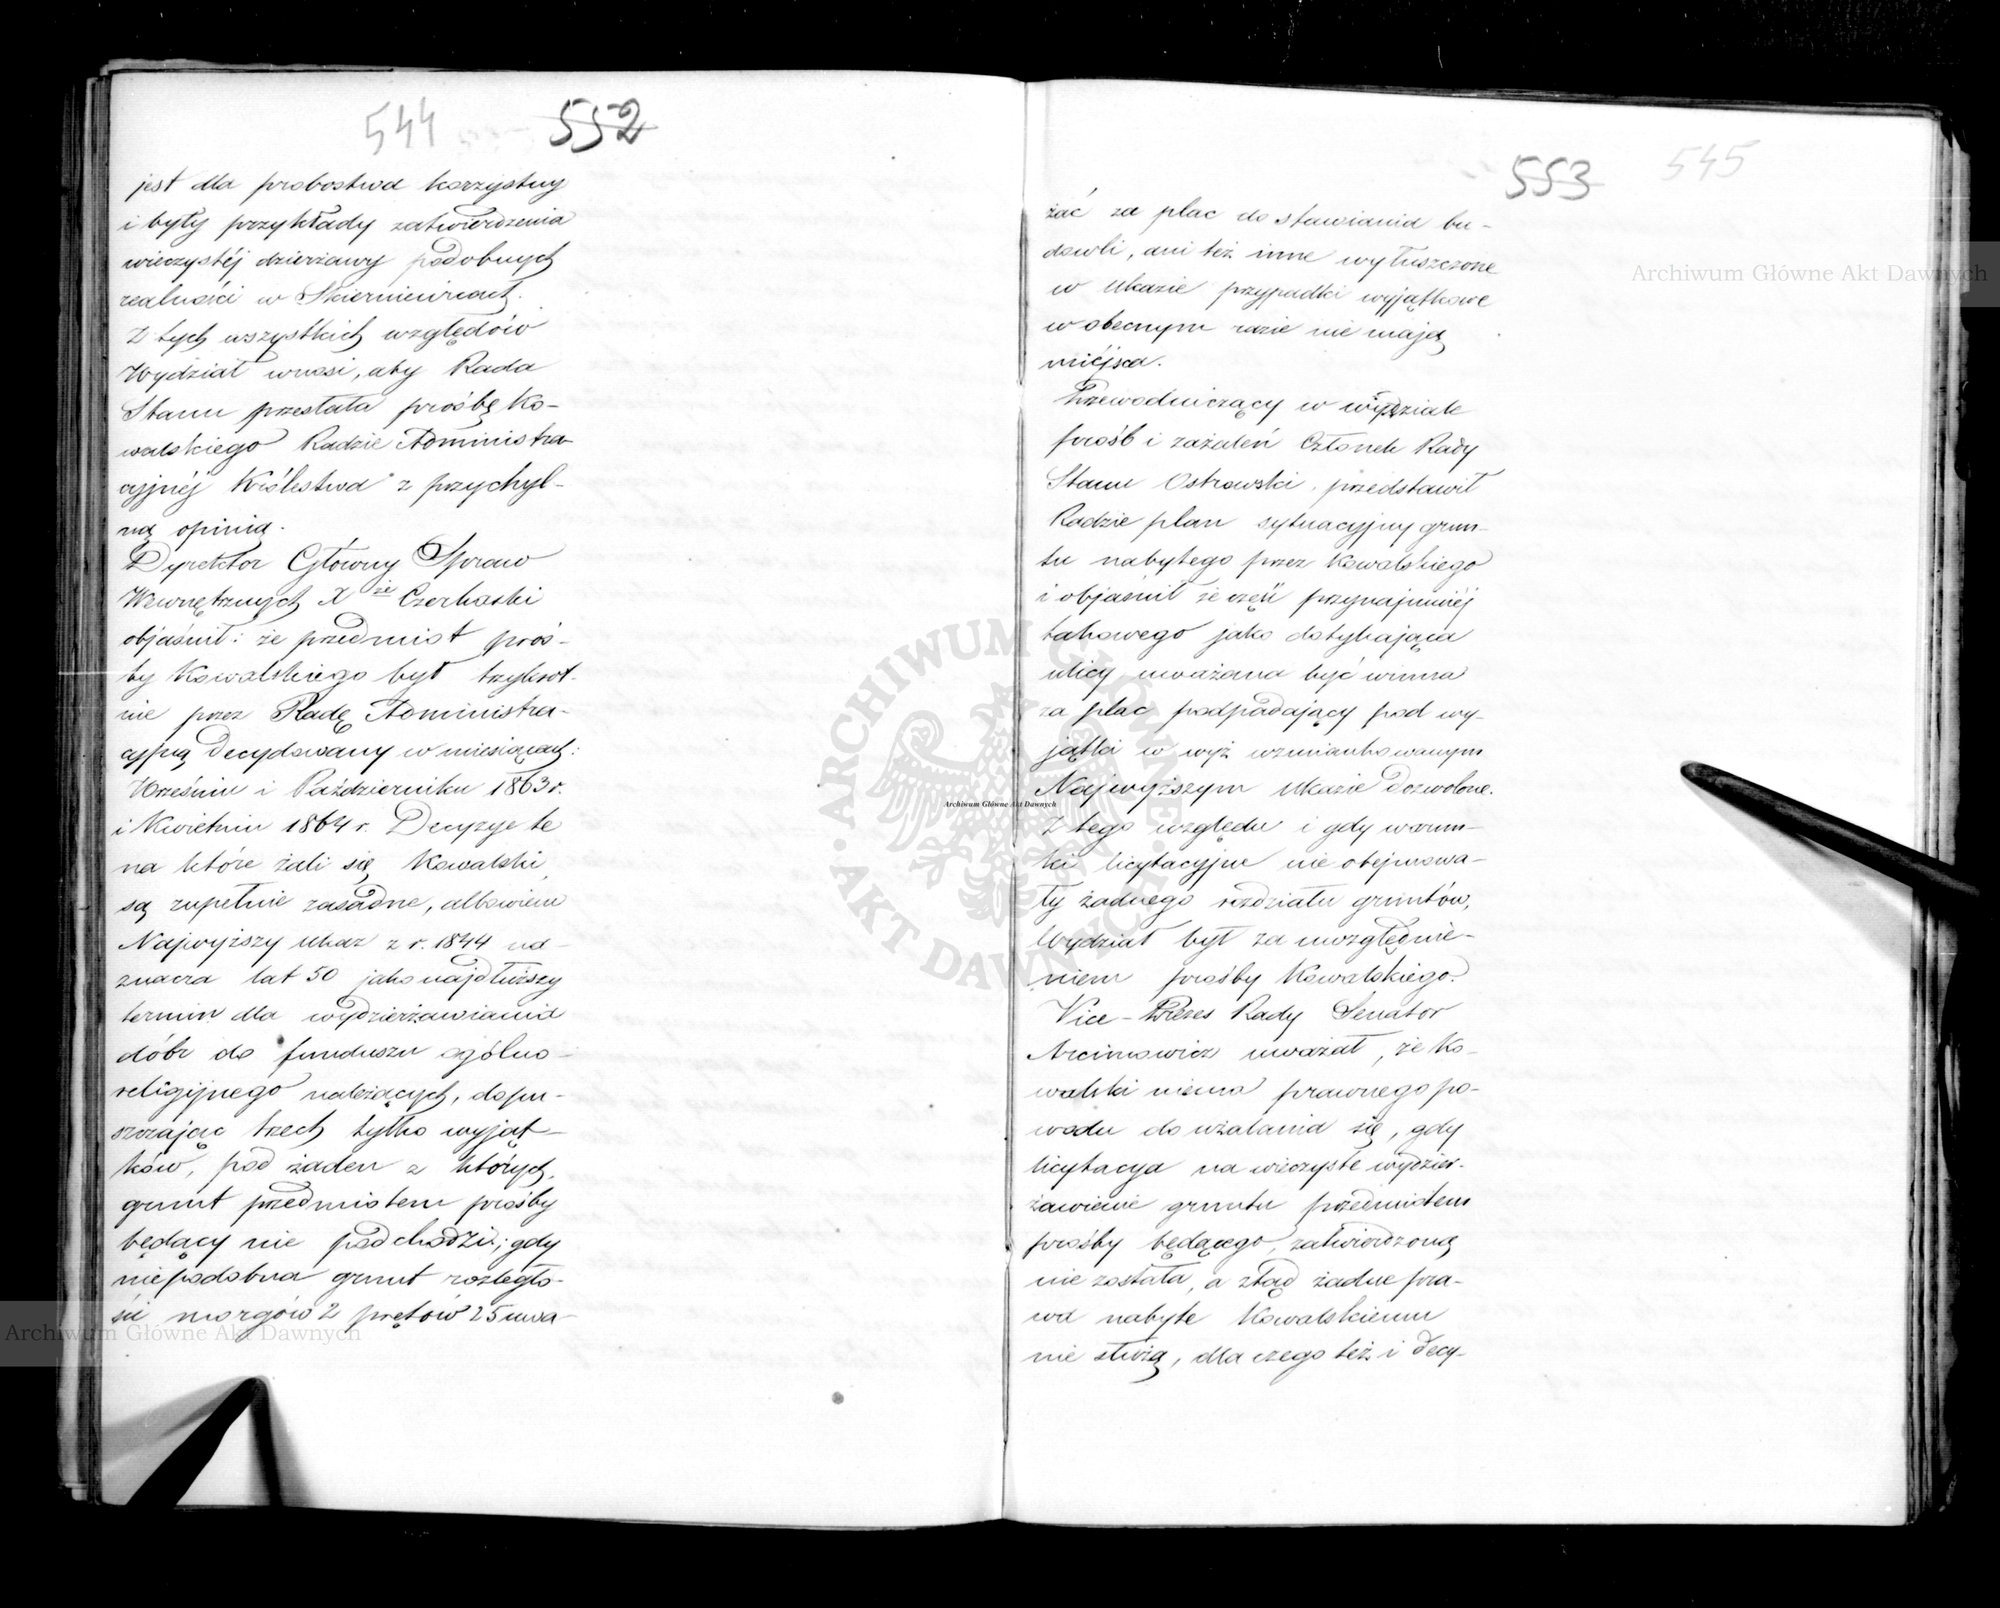 544 552
jest dla probostwa korzystny
i były przykłady zatwierdzenia
wieczystéj dzierżawy podobnych
realności w Skierniewicach.
Z tych wszystkich względów
Wydział wnosi, aby Rada
Stanu przesłała prośbę Ko-
walskiego Radzie Administra-
cyjnéj Królestwa z przychyl-
ną opinią.
Dyrektor Główny Spraw
Wewnętrznych X że Czerkaski
objaśnił: że przedmiot proś-
by Kowalskiego był trzykrot-
nie przez Radę Administra-
cyjną decydowany w miesiącach:
Wrześniu i Październiku 1863 r.
i Kwietniu 1864 r. Decyzye te
na które żali się Kowalski,
są zupełnie zasadne, albowiem
Najwyższy Ukaz z r. 1844 na-
znacza lat 50 jako najdłuższy
termin dla wydzierżawiania
dóbr do funduszu ogólno-
religijnego należących, dopu-
szczając trzech tylko wyjąt-
ków, pod żaden z których,
grunt przedmiotem prośby
będący nie podchodzi; gdy
niepodobna grunt rozległo-
ści morgów 2 prętów 25 uwa-
553 545
żać za plac do stawiania bu-
dowli, ani też inne wyłuszczone
w Ukazie przypadki wyjątkowe
w obecnym razie nie mają
miéjsca.
Przewodniczący w wydziale
prośb i zażaleń Członek Rady
Stanu Ostrowski, przedstawił
Radzie plan sytuacyjny grun-
tu nabytego przez Kowalskiego
i objaśnił że część przynajmniéj
takowego jako dotykająca
ulicy, uważana być winna
za plac podpadający pod wy-
jątki w wyż wzmiankowanym
Najwyższym Ukazie dozwolone.
Z tego względu i gdy warun-
ki licytacyjne nie obejmowa-
ły żadnego rozdziału gruntów,
Wydział był za uwzględnie-
niem prośby Kowalskiego.
Vice-Prezes Rady Senator
Arcimowicz uważał, że Ko-
walski niema prawnego po-
wodu do użalania się, gdy
licytacya na wieczyste wydzier-
żawienie gruntu przedmiotem
prośby będącego, zatwierdzoną
nie została, a ztąd żadne pra-
wa nabyte Kowalskiemu
nie służą, dla czego też i decy-
Archiwum Główne Akt Dawnych
Archiwum Główne Akt Dawnych
Archiwum Główne Akt Dawnych
ARCHIWUM GŁÓWNE AKT DAWNYCH